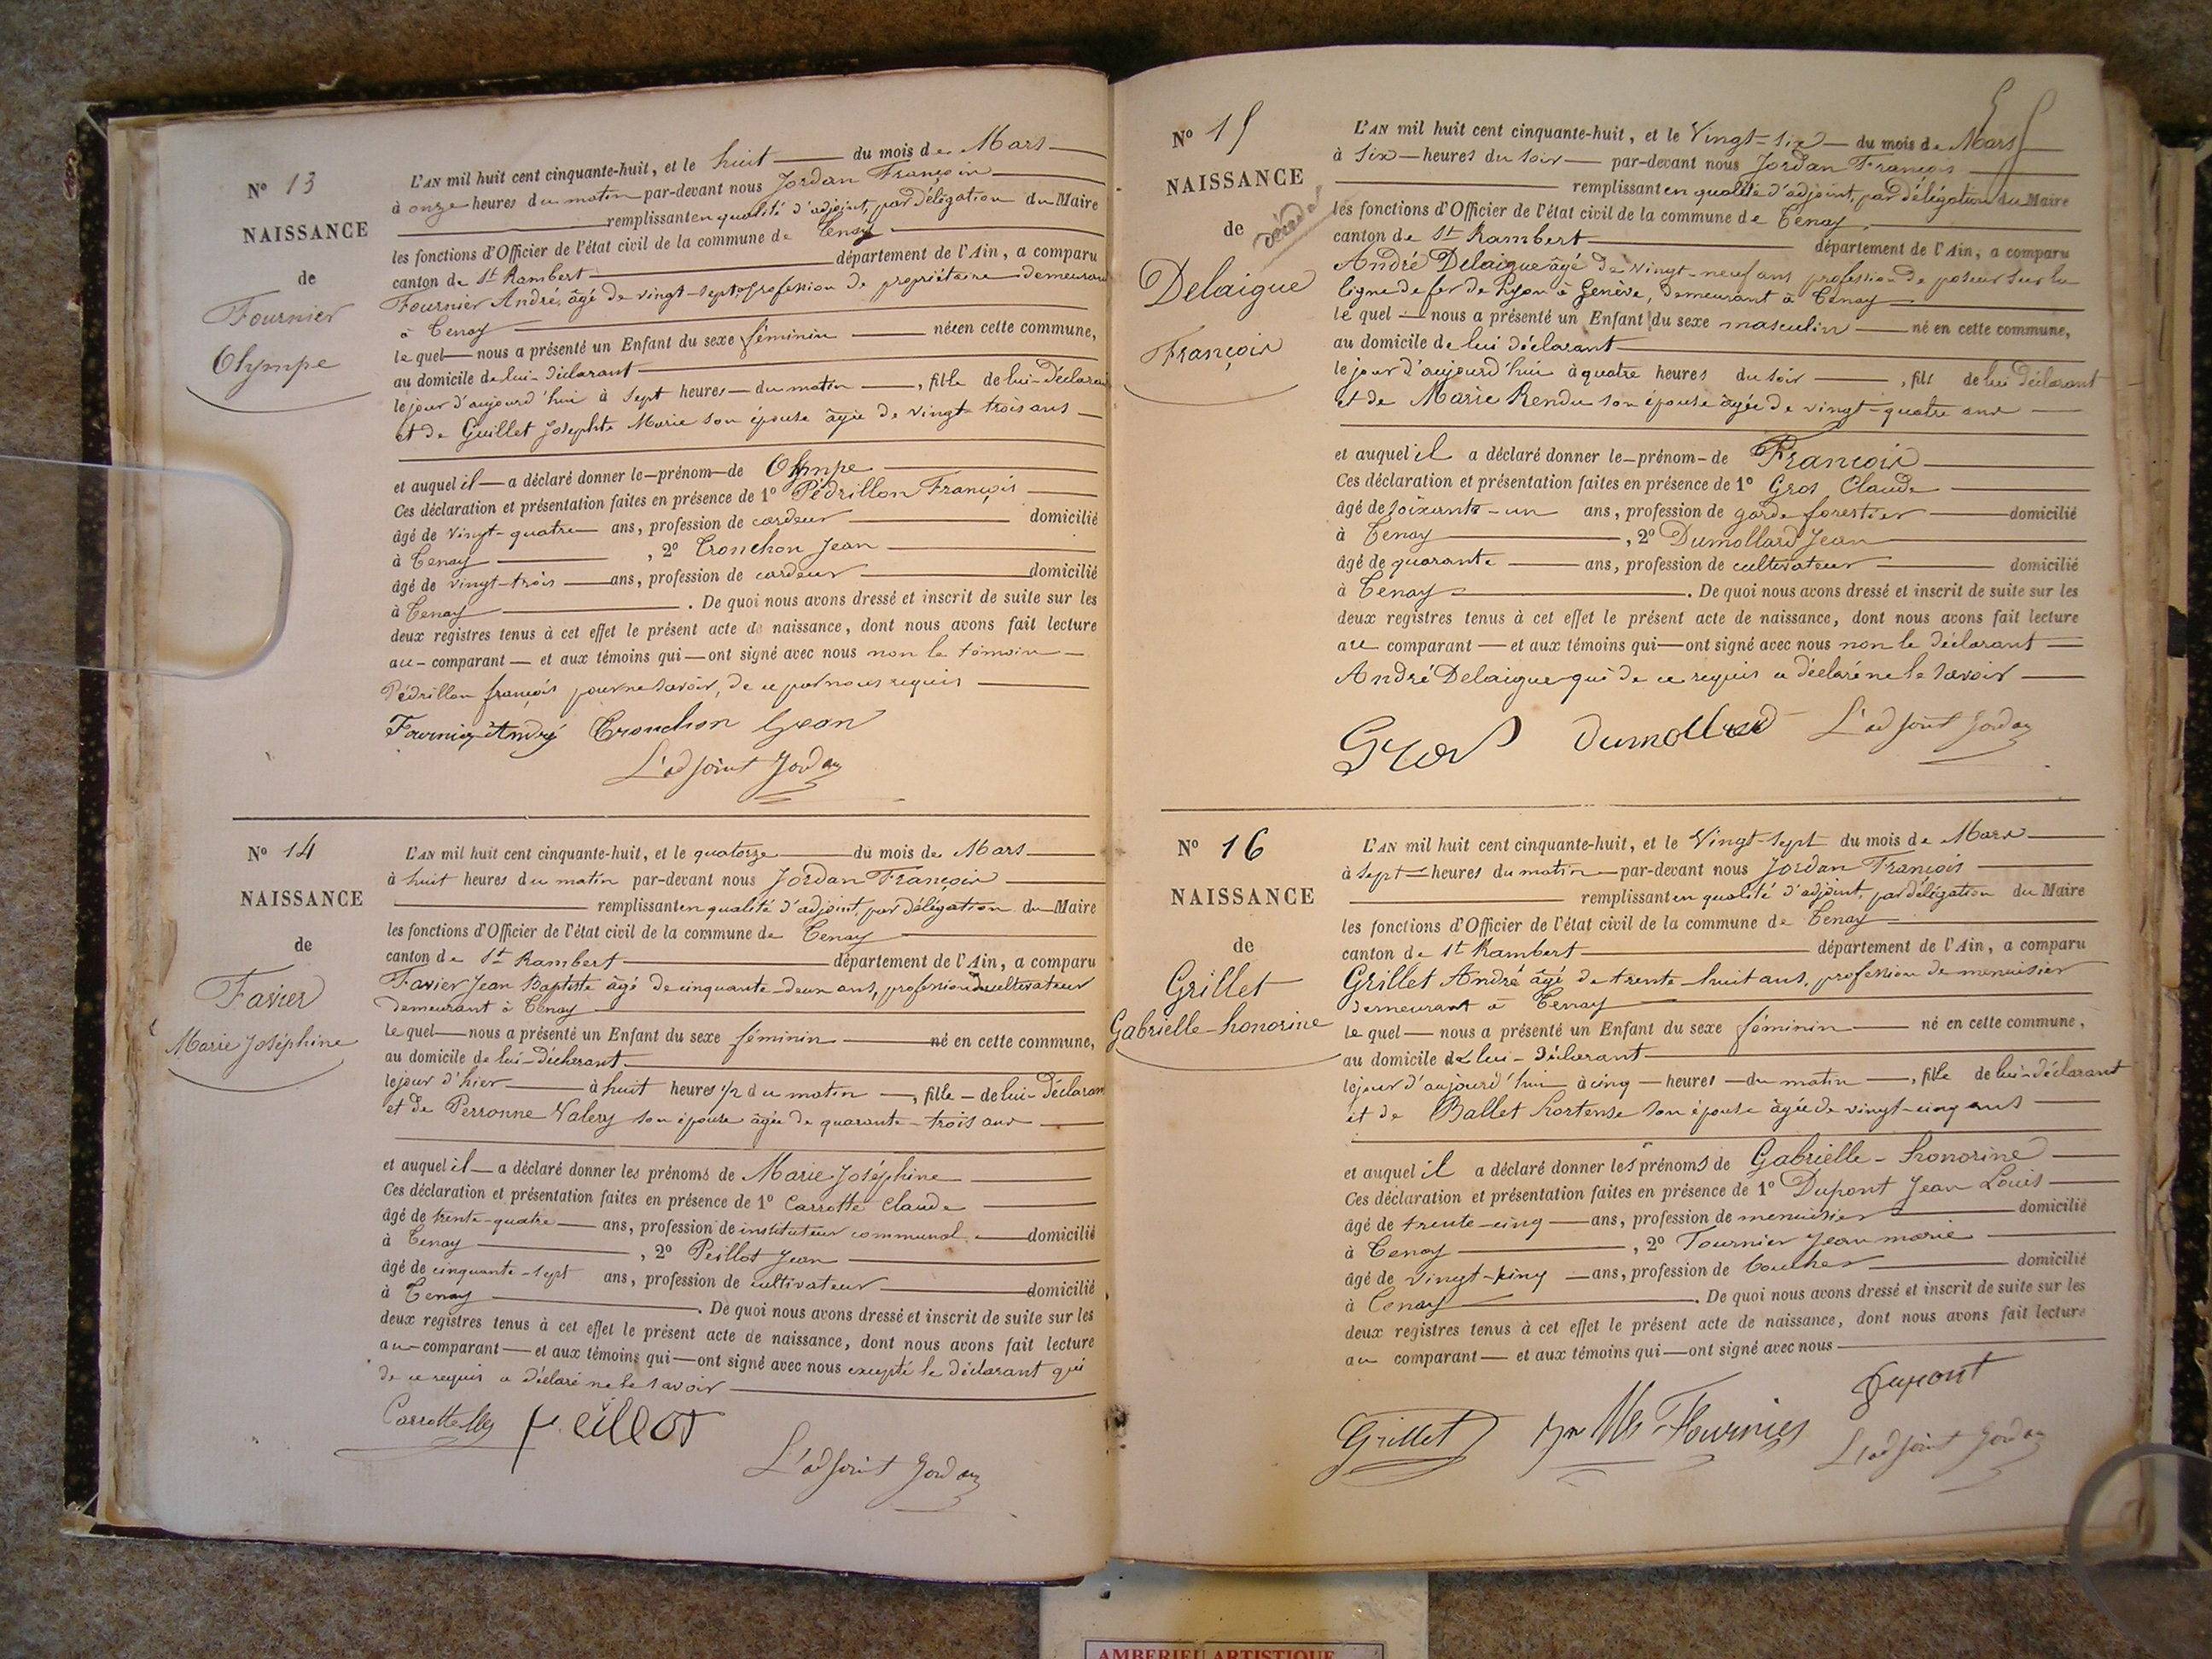 N° 13
NAISSANCE
de
Fournier
Olympe
L'AN mil huit cent cinquante-huit, et le huit du mois de Mars
à onze heures du matin par-devant nous Jordan François
remplissant en qualité d'adjoint, par délégation du Maire
les fonctions d'Officier de l'état civil de la commune de Tenay
canton de St Rambert département de l'Ain, a comparu
Fournier André, âgé de vingt-sept, profession de propriétaire demeurant
à Tenay
lequel nous a présenté un Enfant du sexe féminin né en cette commune,
au domicile de lui-déclarant
le jour d'aujourd'hui à sept heures du matin, fille de lui-déclarant
et de Guillet Josephte Marie son épouse âgée de vingt-trois ans
et auquel il a déclaré donner le prénom de Olympe
Ces déclaration et présentation faites en présence de 1° Pédrillon François
âgé de vingt-quatre ans, profession de cardeur domicilié
à Tenay, 2° Tronchon Jean
âgé de vingt-trois ans, profession de cardeur domicilié
à Tenay. De quoi nous avons dressé et inscrit de suite sur les
deux registres tenus à cet effet le présent acte de naissance, dont nous avons fait lecture
au comparant et aux témoins qui ont signé avec nous non le témoin
Pédrillon françois pour ne savoir, de ce par nous requis
Fournier André Tronchon Jean
L'adjoint Jordan
N° 14
NAISSANCE
de
Favier
Marie Joséphine
L'AN mil huit cent cinquante-huit, et le quatorze du mois de Mars
à huit heures du matin par-devant nous Jordan François
remplissant en qualité d'adjoint, par délégation du Maire
les fonctions d'Officier de l'état civil de la commune de Tenay
canton de St Rambert département de l'Ain, a comparu
Favier Jean Baptiste âgé de cinquante-deux ans, profession de cultivateur
demeurant à Tenay
lequel nous a présenté un Enfant du sexe féminin né en cette commune,
au domicile de lui-déclarant
le jour d'hier à huit heures 1/2 du matin, fille de lui-déclarant
et de Perronne Valery son épouse âgée de quarante-trois ans
et auquel il a déclaré donner les prénoms de Marie Joséphine
Ces déclaration et présentation faites en présence de 1° Carrotte Claude
âgé de trente-quatre ans, profession de instituteur communal domicilié
à Tenay, 2° Peillot Jean
âgé de cinquante-sept ans, profession de cultivateur domicilié
à Tenay. De quoi nous avons dressé et inscrit de suite sur les
deux registres tenus à cet effet le présent acte de naissance, dont nous avons fait lecture
au comparant et aux témoins qui ont signé avec nous excepté le déclarant qui
de ce requis a déclaré ne le savoir
Carrotte peillot
L'adjoint Jordan
N° 15
NAISSANCE
de
Delaigue
François
L'AN mil huit cent cinquante-huit, et le Vingt-six du mois de Mars
à six heures du soir par-devant nous Jordan François
remplissant en qualité d'adjoint, par délégation du Maire
les fonctions d'Officier de l'état civil de la commune de Tenay
canton de St Rambert département de l'Ain, a comparu
André Delaigue âgé de vingt-neuf ans profession de poseur sur la
ligne de fer de Lyon à Genève, demeurant à Tenay
lequel nous a présenté un Enfant du sexe masculin né en cette commune,
au domicile de lui déclarant
le jour d'aujourd'hui à quatre heures du soir, fils de lui déclarant
et de Marie Rendu son épouse âgée de vingt-quatre ans
et auquel il a déclaré donner le prénom de François
Ces déclaration et présentation faites en présence de 1° Gros Claude
âgé de soixante-un ans, profession de garde forestier domicilié
à Tenay, 2° Dumollard Jean
âgé de quarante ans, profession de cultivateur domicilié
à Tenay. De quoi nous avons dressé et inscrit de suite sur les
deux registres tenus à cet effet le présent acte de naissance, dont nous avons fait lecture
au comparant et aux témoins qui ont signé avec nous non le déclarant
André Delaigue qui de ce requis a déclaré ne le savoir
Gros Dumollard L'adjoint Jordan
N° 16
NAISSANCE
de
Grillet
Gabrielle-honorine
L'AN mil huit cent cinquante-huit, et le Vingt-sept du mois de Mars
à sept heures du matin par-devant nous Jordan François
remplissant en qualité d'adjoint, par délégation du Maire
les fonctions d'Officier de l'état civil de la commune de Tenay
canton de St Rambert département de l'Ain, a comparu
Grillet André âgé de trente-huit ans, profession de menuisier
demeurant à Tenay
lequel nous a présenté un Enfant du sexe féminin né en cette commune,
au domicile de lui-déclarant
le jour d'aujourd'hui à cinq heures du matin, fille de lui-déclarant
et de Ballet hortense son épouse âgée de vingt-cinq ans
et auquel il a déclaré donner les prénoms de Gabrielle-honorine
Ces déclaration et présentation faites en présence de 1° Dupont Jean Louis
âgé de trente-cinq ans, profession de menuisier domicilié
à Tenay, 2° Fournier Jean marie
âgé de vingt-cinq ans, profession de boucher domicilié
à Tenay. De quoi nous avons dressé et inscrit de suite sur les
deux registres tenus à cet effet le présent acte de naissance, dont nous avons fait lecture
au comparant et aux témoins qui ont signé avec nous
Dupont
Grillet Fournier L'adjoint Jordan
AMBERIEU ARTISTIQUE